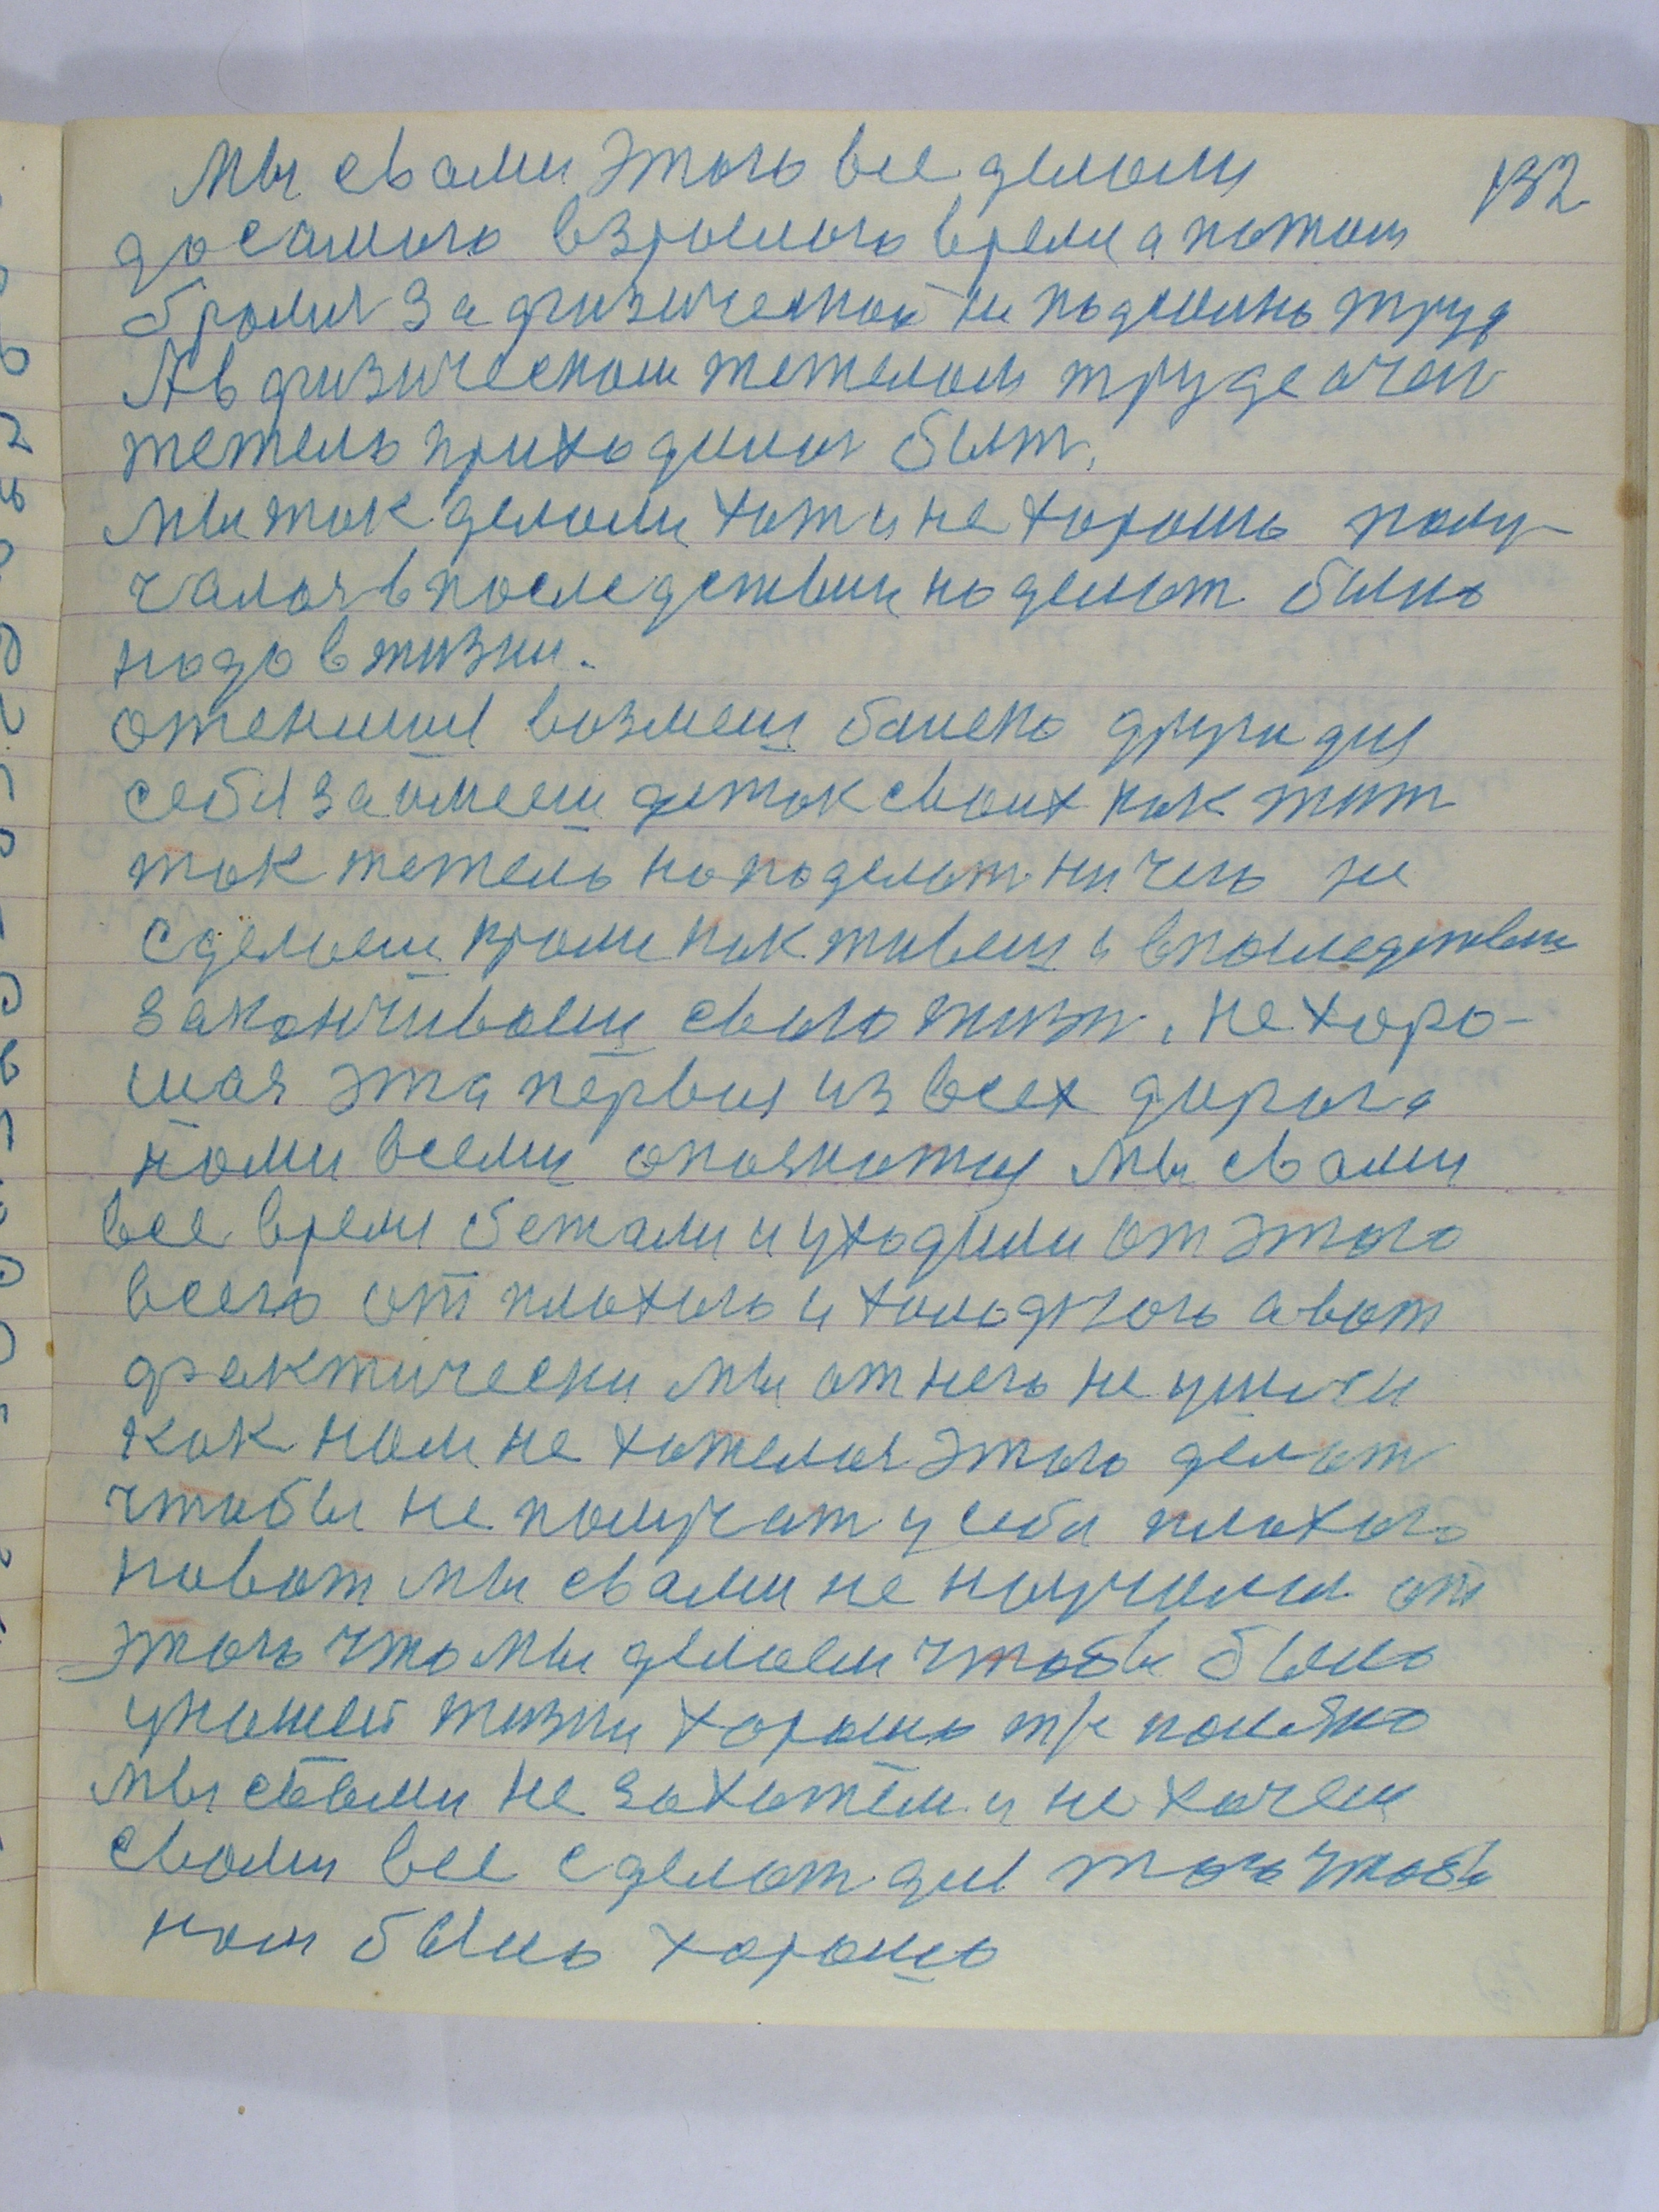 132
Мы свами этого все делали
до самого взрослого время а потом
бролися за физической не подсильно труд
А в физическом тежелом труде очен
тежело приходился быт.
Мы так делали хот и не хорошо полу-
чалоя в последствии но делат было
надо в жизни.
Оженишся возмеш близко други для
себя займееш деток своих как жит
так тежело но поделат ничего не
сделаеш кроми как живеш и впоследствии
заканчиваеш свою жизн. Не хоро-
шая эта первая из всех дорога
нами всеми Мы свами
все время бежали и уходили от этого
всего от плохого и холодного а вот
фактически мы от него не ушли
как нам не хотелоя этого делат
чтобы не получат у себя плохого
но вот мы свами не научилися от
этого что мы делаем чтобы было
у нашей жизни хорошо т/к
мы свами не захотели и не хочем
свами все сделат для того чтобы
нам было хорошо